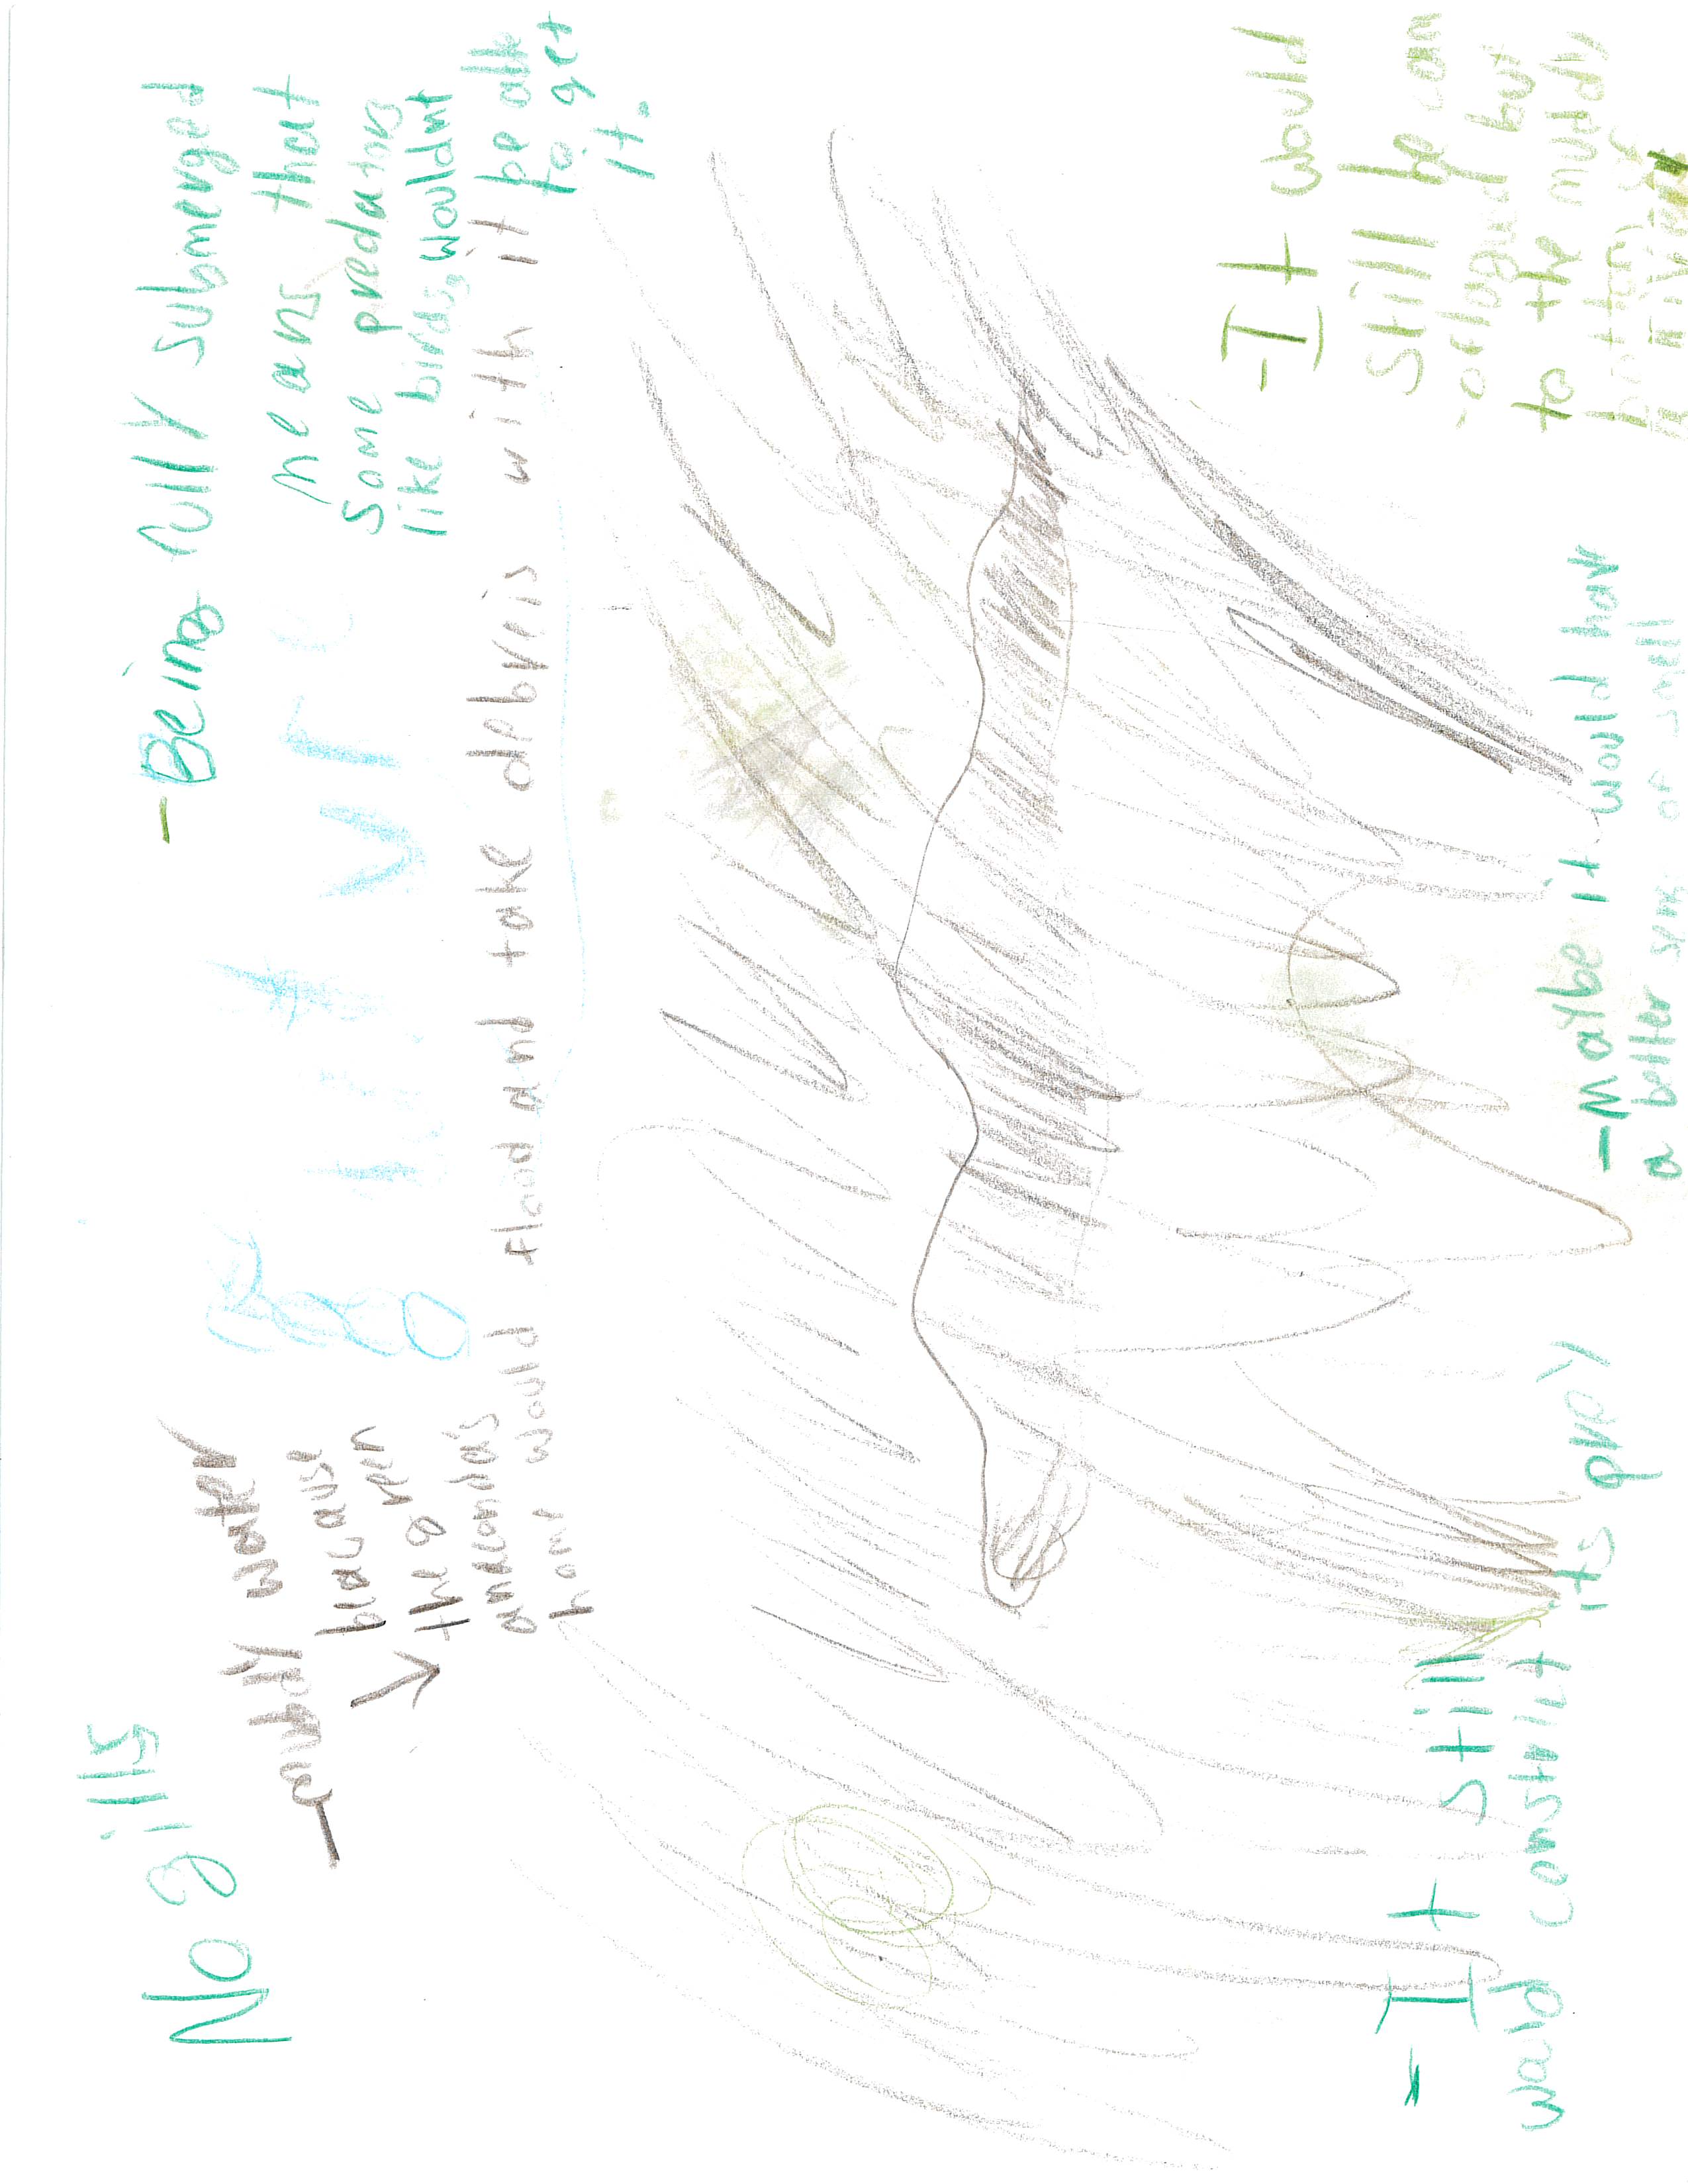 No gills
-mudy water
because
the green
anacondas
home would flood and take debreis with it
Future
-Being fully submerged
means that
some predators
like birds, wouldnt
be able
to get
it.
-It would
still be cam
-oflagued but
to the muddy
bottom of
a river
-It still
wald constrict its prey
-Maybe it would hav
a better sense of smell